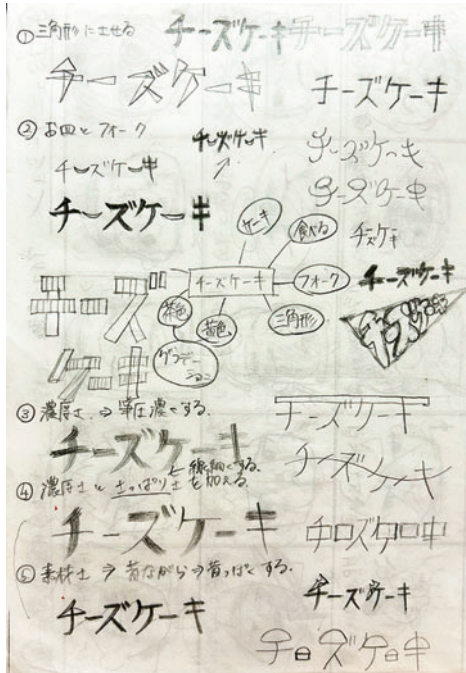 ①三角形にさせる
チーズケーキ
チーズケーキ
チーズケーキ
チーズケーキ
②お皿とフォーク
チーズケーキ
チーズケーキ
チーズケーキ
チーズケーキ
チーズケーキ
チーズケーキ
チーズケーキ
ケーキ
食べる
チーズケーキ
フォーク
チーズケーキ
茶色
黄色
三角形
グラデーション
チーズ
ケーキ
チーズ
③濃厚さ ⇒ 筆圧濃くする。
チーズケーキ
チーズケーキ
線細くする。
チーズケーキ
④濃厚さとさっぱりさを加える。
チーズケーキ
チーズケーキ
⑤素材さ ⇒ 昔ながら⇒昔っぽくする。
チーズケーキ
チーズケーキ
チーズケーキ